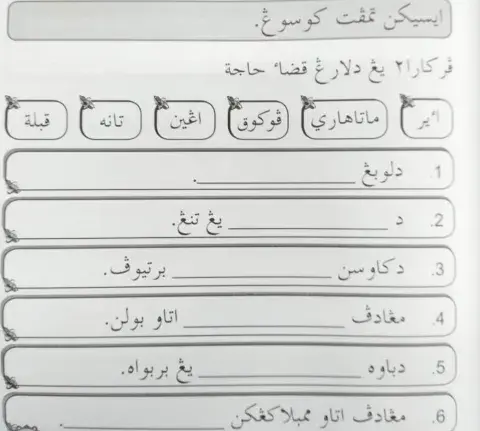 ايسيكن تمڤت كوسوڠ.
ڤركارا٢ يڠ دلارڠ قضاء حاجة
اءير ماتاهاري ڤوكوق اڠين تانه قبلة
1 دلوبڠ ____________.
2. د ____________ يڠ تنڠ.
3. دكاوسن ____________ برتيوڤ.
4. مڠادڤ ____________ اتاو بولن.
5. دباوه ____________ يڠ بربواه.
6. مڠادڤ اتاو ممبلاكڠكن ____________.